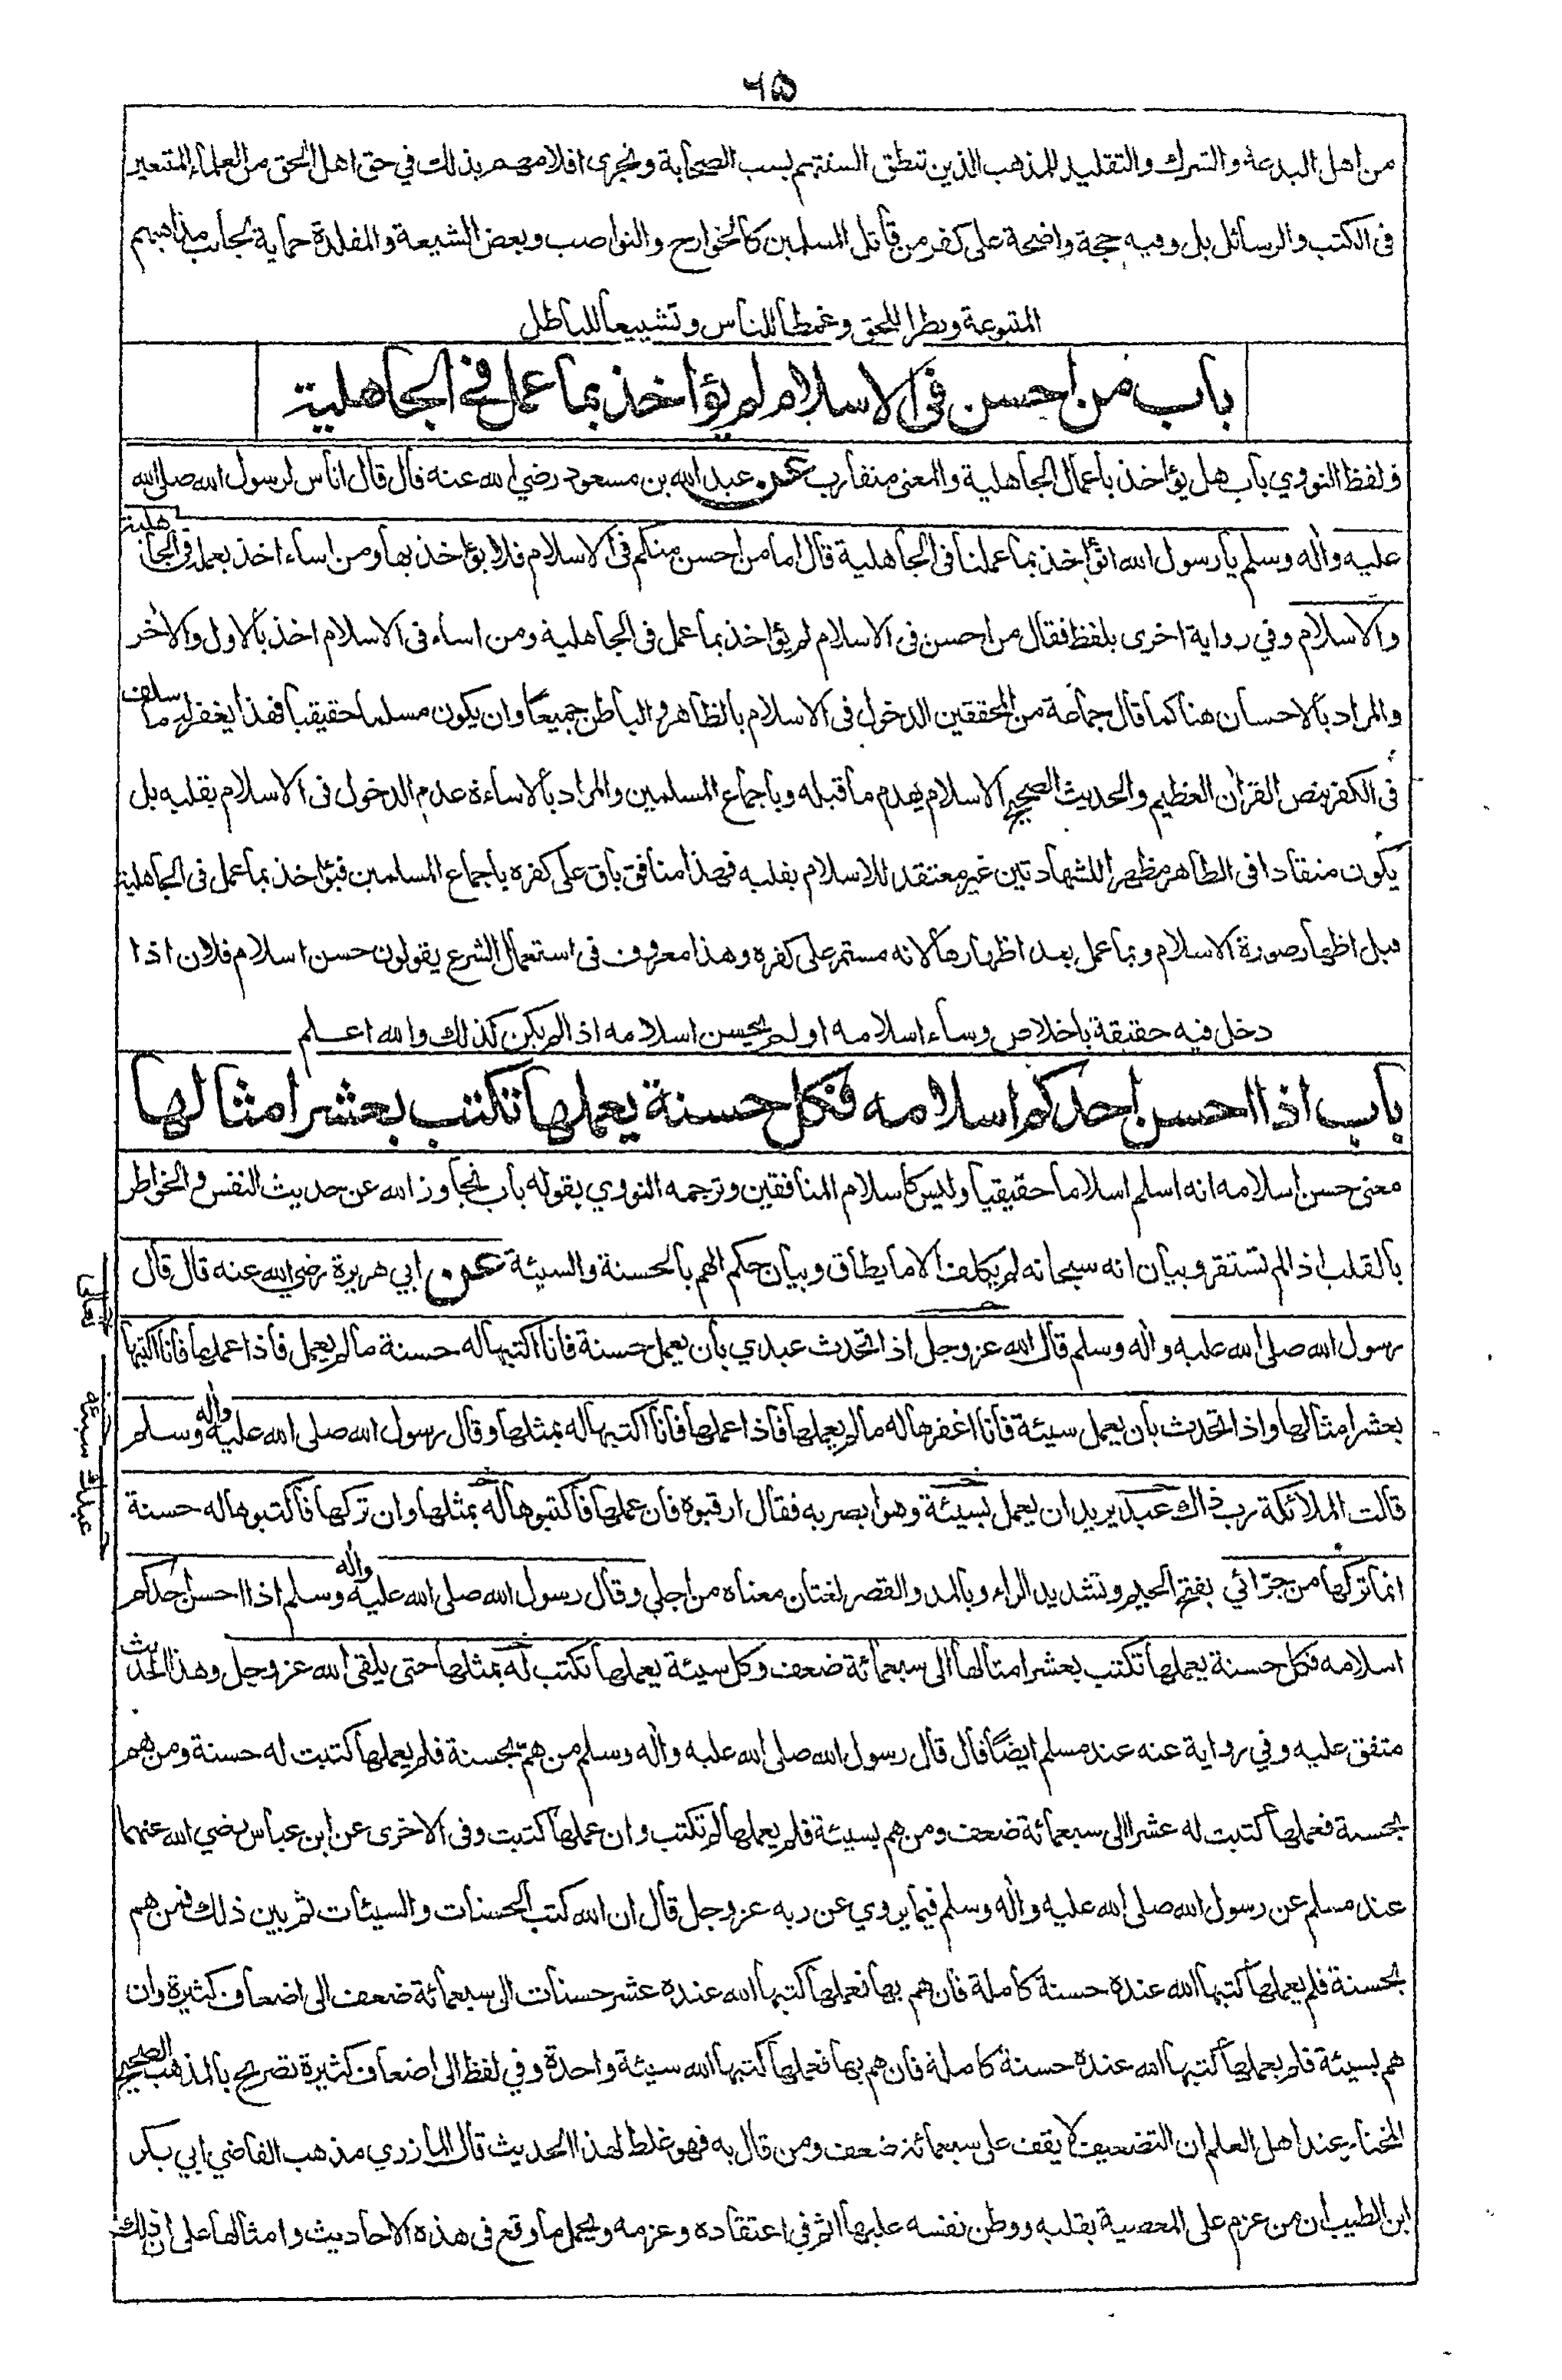 ٦٥
من اهل البدعة والشرك والتقليد للمذهب الذين تنطق السنتهم بسب الصحابة وتجرى اقلامهم بذلك في حق اهل الحق من العلماء المتبعين
فى الكتب والرسائل بل وفيه حجة واضحة على كفر من قاتل المسلمين كالخوارج والنواصب وبعض الشيعة والمقلدة حماية لجانب مذاهبهم
المتبوعة وبطرا للحق وغمطا للناس وتشييعا للباطل
باب من احسن فى الاسلام لم يؤاخذ بما عمل في الجاهلية
ولفظ النووي باب هل يؤاخذ باعمال الجاهلية والمعنى متقارب عن عبد الله بن مسعود رضي الله عنه قال قال اناس لرسول الله صلى الله
عليه واٰله وسلم يا رسول الله انؤاخذ بما عملنا فى الجاهلية قال اما من احسن منكم فى الاسلام فلا يؤاخذ بها ومن اساء اخذ بعمله فى الجاهلية
والاسلام وفي رواية اخرى بلفظ فقال من احسن فى الاسلام لم يؤاخذ بما عمل فى الجاهلية ومن اساء فى الاسلام اخذ بالاول والاٰخر
والمراد بالاحسان هنا كما قال جماعة من المحققين الدخول فى الاسلام بالظاهر والباطن جميعا وان يكون مسلما حقيقيا فهذا يغفر له ما سلف
فى الكفر بنص القراٰن العظيم والحديث الصحيح الاسلام يهدم ما قبله وباجماع المسلمين والمراد بالاساءة عدم الدخول فى الاسلام بقلبه بل
يكون منقادا فى الظاهر مظهرا للشهادتين غير معتقد للاسلام بقلبه فهذا منافق باق على كفره باجماع المسلمين فيؤاخذ بما عمل فى الجاهلية
قبل اظهار صورة الاسلام وبما عمل بعد اظهارها لانه مستمر على كفره وهذا معروف فى استعمال الشرع يقولون حسن اسلام فلان اذا
دخل فيه حقيقة باخلاص وساء اسلامه او لم يحسن اسلامه اذا لم يكن كذلك والله اعلم
باب اذا احسن احدكم اسلامه فكل حسنة يعملها تكتب بعشر امثالها
معنى حسن اسلامه انه اسلم اسلاما حقيقيا وليس كاسلام المنافقين وترجمه النووي بقوله باب تجاوز الله عن حديث النفس والخواطر
بالقلب اذا لم تستقر وبيان انه سبحانه لم يكلف الا ما يطاق وبيان حكم الهم بالحسنة والسيئة عن ابي هريرة رضي الله عنه قال قال
رسول الله صلى الله عليه واٰله وسلم قال الله عز وجل اذا تحدث عبدي بان يعمل حسنة فانا اكتبها له حسنة ما لم يعمل فاذا عملها فانا اكتبها
بعشر امثالها واذا تحدث بان يعمل سيئة فانا اغفرها له ما لم يعملها فاذا عملها فانا اكتبها له بمثلها وقال رسول الله صلى الله عليه واٰله وسلم
قالت الملائكة رب ذاك عبد يريد ان يعمل بسيئة وهو ابصر به فقال ارقبوه فان عملها فاكتبوها له بمثلها وان تركها فاكتبوها له حسنة
انما تركها من جرّائي بفتح الجيم وتشديد الراء وبالمد والقصر لغتان معناه من اجلي وقال رسول الله صلى الله عليه واٰله وسلم اذا احسن احدكم
اسلامه فكل حسنة يعملها تكتب بعشر امثالها الى سبعمائة ضعف وكل سيئة يعملها تكتب له بمثلها حتى يلقى الله عز وجل وهذا الحديث
متفق عليه وفي رواية عنه عند مسلم ايضا قال قال رسول الله صلى الله عليه واٰله وسلم من همّ بحسنة فلم يعملها كتبت له حسنة ومن هم
بحسنة فعملها كتبت له عشرا الى سبعمائة ضعف ومن هم بسيئة فلم يعملها لم تكتب وان عملها كتبت وفى الاخرى عن ابن عباس رضي الله عنهما
عند مسلم عن رسول الله صلى الله عليه واٰله وسلم فيما يروي عن ربه عز وجل قال ان الله كتب الحسنات والسيئات ثم بين ذلك فمن هم
بحسنة فلم يعملها كتبها الله عنده حسنة كاملة فان هم بها فعملها كتبها الله عنده عشر حسنات الى سبعمائة ضعف الى اضعاف كثيرة وان
هم بسيئة فلم يعملها كتبها الله عنده حسنة كاملة فان هم بها فعملها كتبها الله سيئة واحدة وفي لفظ الى اضعاف كثيرة تصريح بالمذهب الصحيح
المختار عند اهل العلم ان التضعيف لا يقف على سبعمائة ضعف ومن قال به فهو غلط لهذا الحديث قال المازري مذهب القاضي ابي بكر
ابن الطيب ان من عزم على المعصية بقلبه ووطن نفسه عليها اثم في اعتقاده وعزمه ويحمل ما وقع فى هذه الاحاديث وامثالها على ان ذلك
تعالى
عبدك سيئة